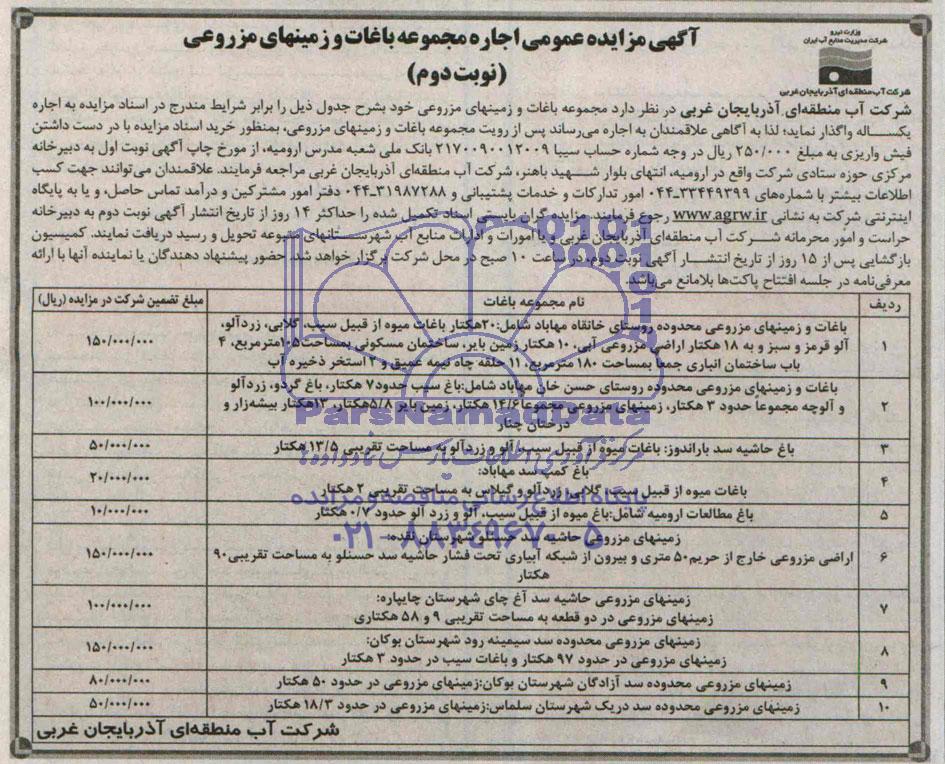 وزارت نیرو
شرکت مدیریت منابع آب ایران
شرکت آب منطقه‌ای آذربایجان غربی
آگهی مزایده عمومی اجاره مجموعه باغات و زمینهای مزروعی
(نوبت دوم)
شرکت آب منطقه‌ای آذربایجان غربی در نظر دارد مجموعه باغات و زمینهای مزروعی خود بشرح جدول ذیل را برابر شرایط مندرج در اسناد مزایده به اجاره
یکساله واگذار نماید؛ لذا به آگاهی علاقمندان به اجاره می‌رساند پس از رویت مجموعه باغات و زمینهای مزروعی، بمنظور خرید اسناد مزایده با در دست داشتن
فیش واریزی به مبلغ ۲۵۰/۰۰۰ ریال در وجه شماره حساب سیبا ۲۱۷۰۰۹۰۰۱۲۰۰۹ بانک ملی شعبه مدرس ارومیه، از مورخ چاپ آگهی نوبت اول به دبیرخانه
مرکزی حوزه ستادی شرکت واقع در ارومیه، انتهای بلوار شهید باهنر، شرکت آب منطقه‌ای آذربایجان غربی مراجعه فرمایند. علاقمندان می‌توانند جهت کسب
اطلاعات بیشتر با شماره‌های ۳۳۴۴۹۳۹۹-۰۴۴ امور تدارکات و خدمات پشتیبانی و ۳۱۹۸۷۲۸۸-۰۴۴ دفتر امور مشترکین و درآمد تماس حاصل، و یا به پایگاه
اینترنتی شرکت به نشانی www.agrw.ir رجوع فرمایند. مزایده گران بایستی اسناد تکمیل شده را حداکثر ۱۴ روز از تاریخ انتشار آگهی نوبت دوم به دبیرخانه
حراست و امور محرمانه شرکت آب منطقه‌ای آذربایجان غربی و یا امورات و ادارات منابع آب شهرستانهای متبوعه تحویل و رسید دریافت نمایند. کمیسیون
بازگشایی پس از ۱۵ روز از تاریخ انتشار آگهی نوبت دوم، در ساعت ۱۰ صبح در محل شرکت برگزار خواهد شد. حضور پیشنهاد دهندگان یا نماینده آنها با ارائه
معرفی‌نامه در جلسه افتتاح پاکت‌ها بلامانع می‌باشد.
ردیف نام مجموعه باغات مبلغ تضمین شرکت در مزایده (ریال)
باغات و زمینهای مزروعی محدوده روستای خانقاه مهاباد شامل:۲۰هکتار باغات میوه از قبیل سیب، گلابی، زردآلو،
۱ آلو قرمز و سبز و به ۱۸ هکتار اراضی مزروعی آبی، ۱۰ هکتار زمین بایر، ساختمان مسکونی بمساحت۱۰۵مترمربع، ۴ ۱۵۰/۰۰۰/۰۰۰
باب ساختمان انباری جمعا بمساحت ۱۸۰ مترمربع، ۱۱ حلقه چاه نیمه عمیق و ۲ استخر ذخیره آب
باغات و زمینهای مزروعی محدوده روستای حسن خان مهاباد شامل:باغ سیب حدود۷ هکتار، باغ گردو، زردآلو
۲ و آلوچه مجموعا حدود ۳ هکتار، زمینهای مزروعی مجموعا۱۴/۶ هکتار، زمین بایر ۵/۸هکتار، ۱۳هکتار بیشه‌زار و ۱۰۰/۰۰۰/۰۰۰
درختان چنار
۳ باغ حاشیه سد باراندوز: باغات میوه از قبیل سیب، آلو و زردآلو به مساحت تقریبی ۱۳/۵ هکتار ۵۰/۰۰۰/۰۰۰
باغ کمپ سد مهاباد:
۴ باغات میوه از قبیل سیب، گلابی، زردآلو و گیلاس به مساحت تقریبی ۲ هکتار ۲۰/۰۰۰/۰۰۰
۵ باغ مطالعات ارومیه شامل:باغ میوه از قبیل سیب، آلو و زرد آلو حدود ۰/۷ هکتار ۱۰/۰۰۰/۰۰۰
زمینهای مزروعی حاشیه سد حسنلو شهرستان نقده:
۶ اراضی مزروعی خارج از حریم۵۰ متری و بیرون از شبکه آبیاری تحت فشار حاشیه سد حسنلو به مساحت تقریبی۹۰ ۱۵۰/۰۰۰/۰۰۰
هکتار
زمینهای مزروعی حاشیه سد آغ چای شهرستان چایپاره:
۷ زمینهای مزروعی در دو قطعه به مساحت تقریبی ۹ و ۵۸ هکتاری ۱۰۰/۰۰۰/۰۰۰
زمینهای مزروعی محدوده سد سیمینه رود شهرستان بوکان:
۸ زمینهای مزروعی در حدود ۹۷ هکتار و باغات سیب در حدود ۳ هکتار ۱۵۰/۰۰۰/۰۰۰
۹ زمینهای مزروعی محدوده سد آزادگان شهرستان بوکان:زمینهای مزروعی در حدود ۵۰ هکتار ۸۰/۰۰۰/۰۰۰
۱۰ زمینهای مزروعی محدوده سد دریک شهرستان سلماس:زمینهای مزروعی در حدود ۱۸/۳ هکتار ۵۰/۰۰۰/۰۰۰
شرکت آب منطقه‌ای آذربایجان غربی
ParsNamadData
پایگاه اطلاع رسانی مناقصه و مزایده
۰۲۱-۸۸۳۴۹۶۷۰-۵